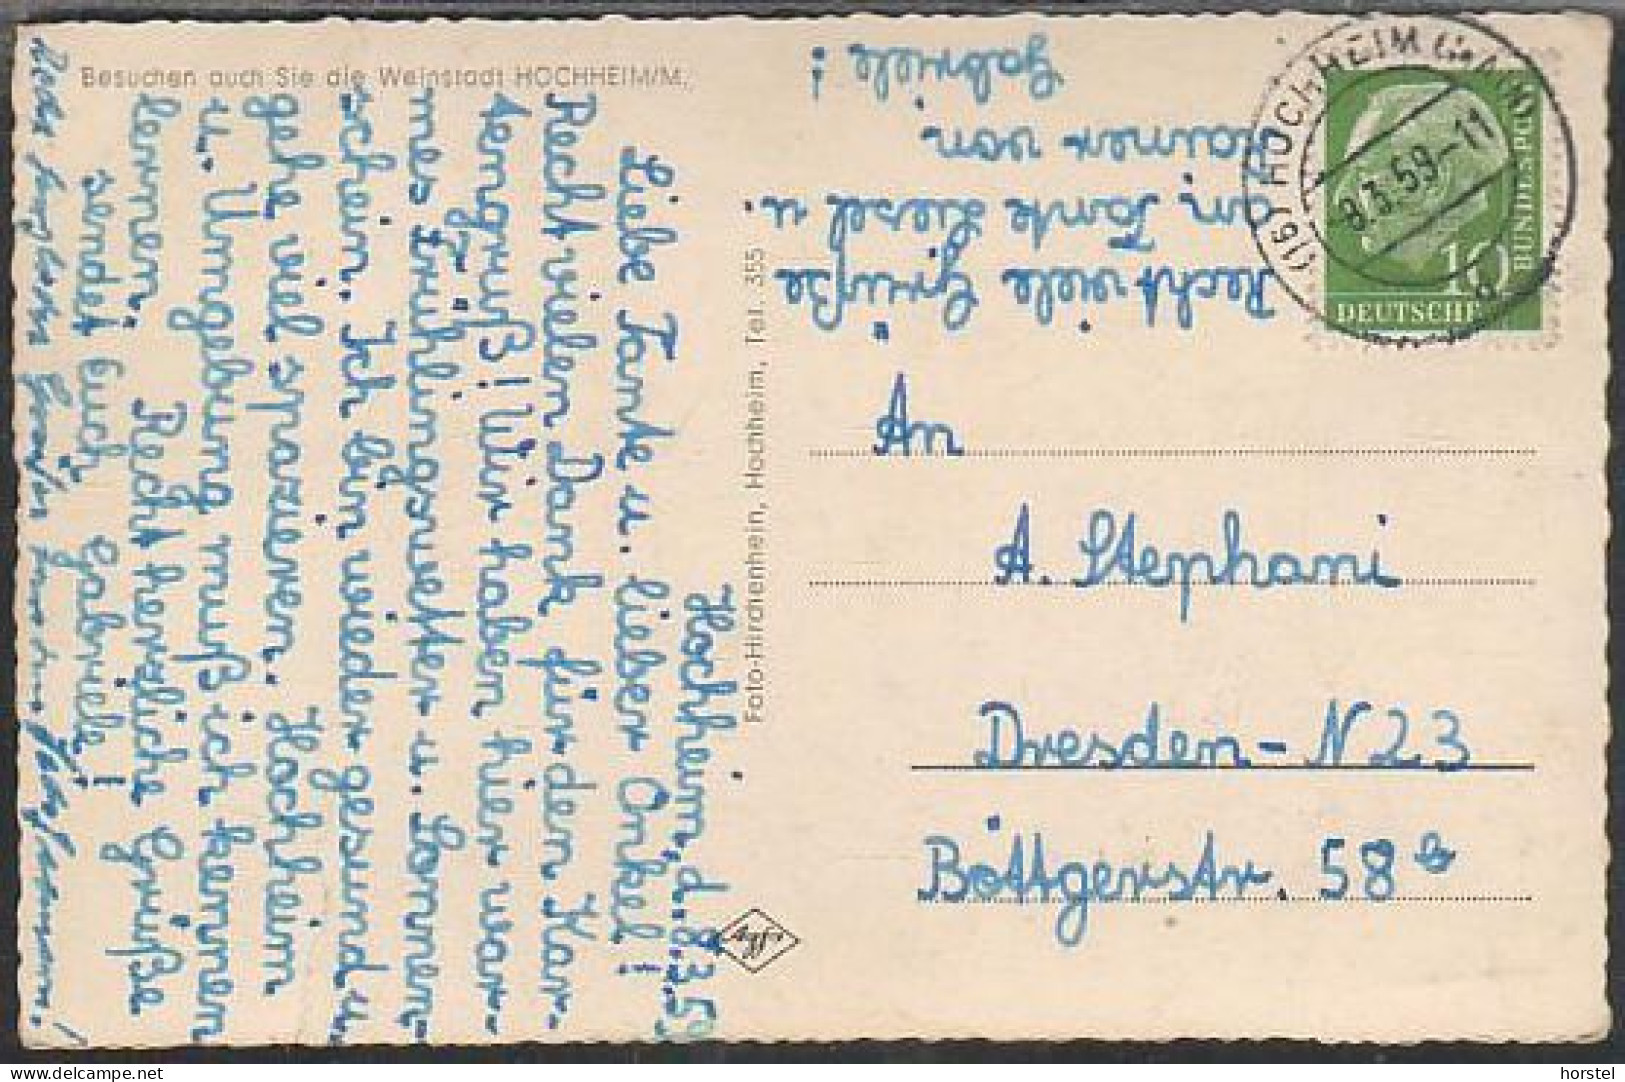 Besuchen auch Sie die Weinstadt HOCHHEIM/M.
Hochheim, d. 8.3.59
Liebe Tante u. lieber Onkel!
Recht vielen Dank für den Kar-
tengruß! Wir haben hier war-
mes Frühlingswetter u. Sonnen-
schein. Ich bin wieder gesund u.
gehe viel spazieren. Hochheim
u. Umgebung muß ich kennen
lernen. Recht herzliche Grüße
sendet Euch Gabriele!
Grüßen
Recht viele Grüße
an Tante Liesel u.
Rainer von
Gabriele!
Foto-Hirchenhein, Hochheim, Tel. 355
Agfa
(16) HOCHHEIM (MAIN)
8.3.59-11
10
DEUTSCHE
BUNDESPOST
An
A. Stephani
Dresden-N23
Böttgerstr. 58 b
horstel